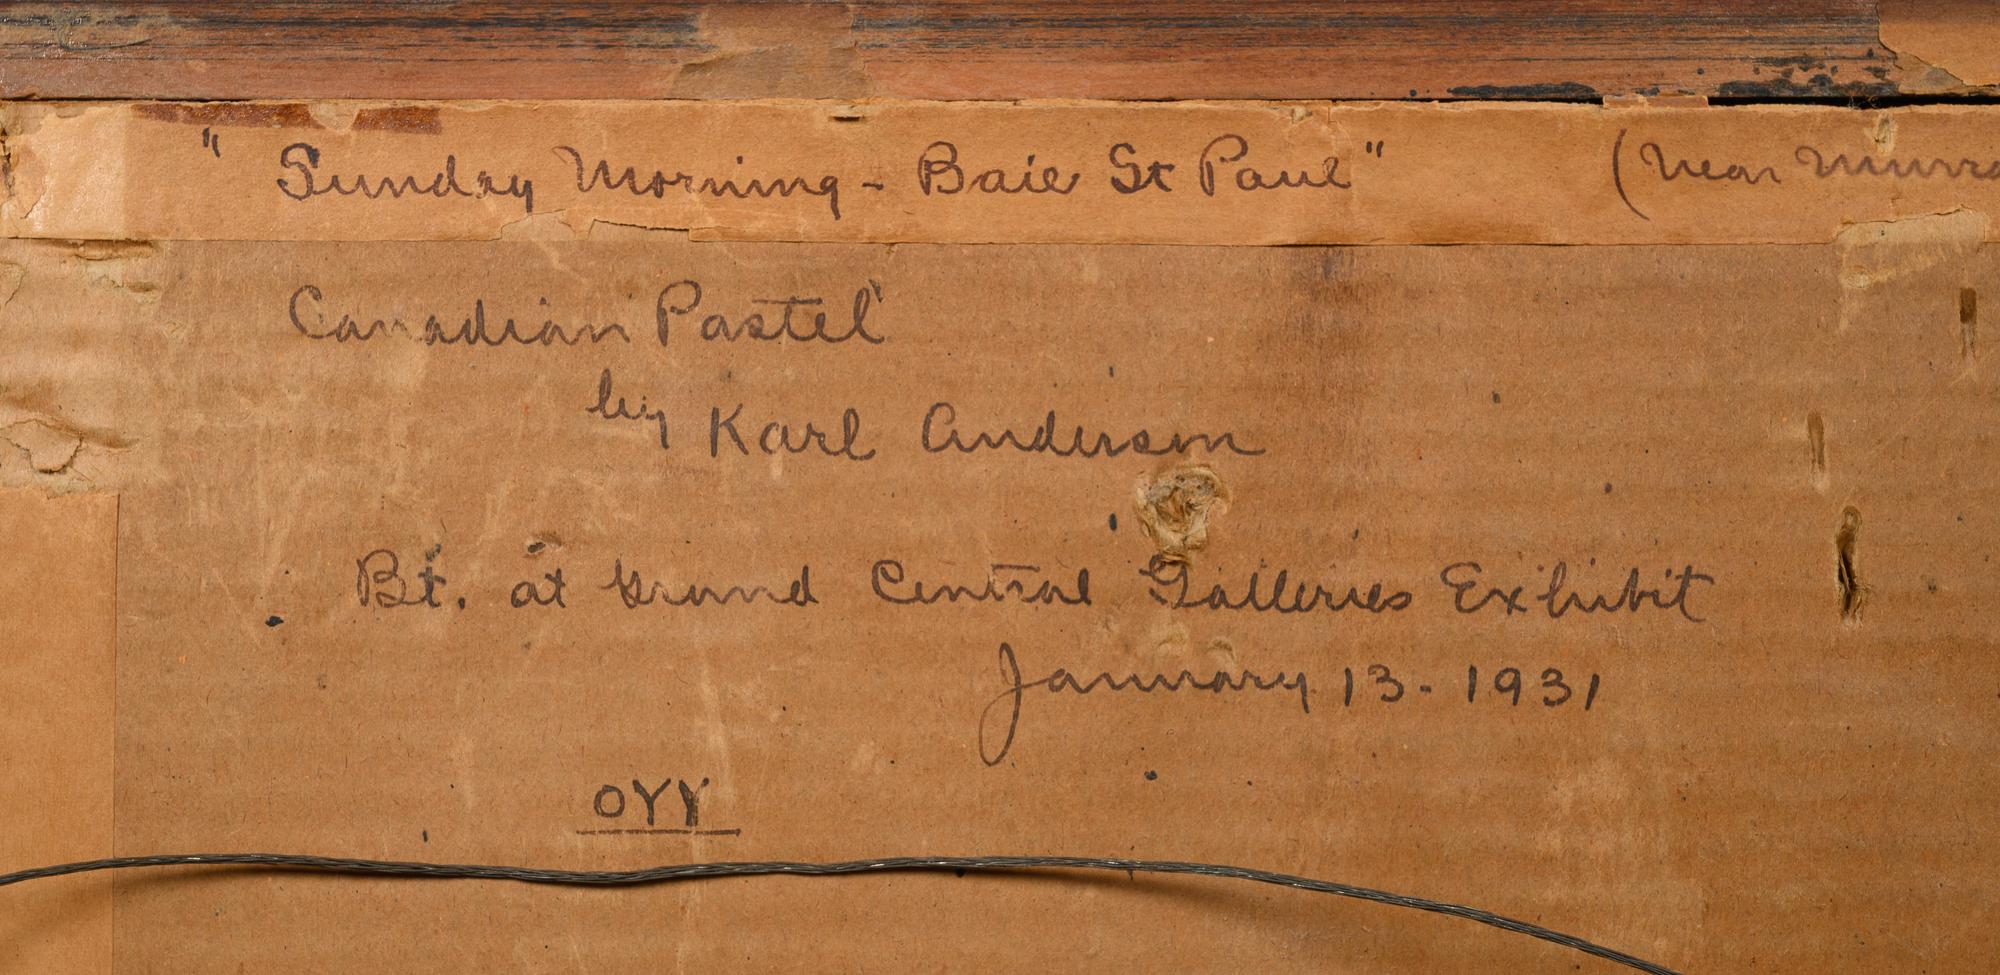 "Sunday Morning - Baie St Paul" (Near Murra
Canadian Pastel
by Karl Anderson
Bt. at Grand Central Galleries Exhibit
January 13 - 1931
OYY